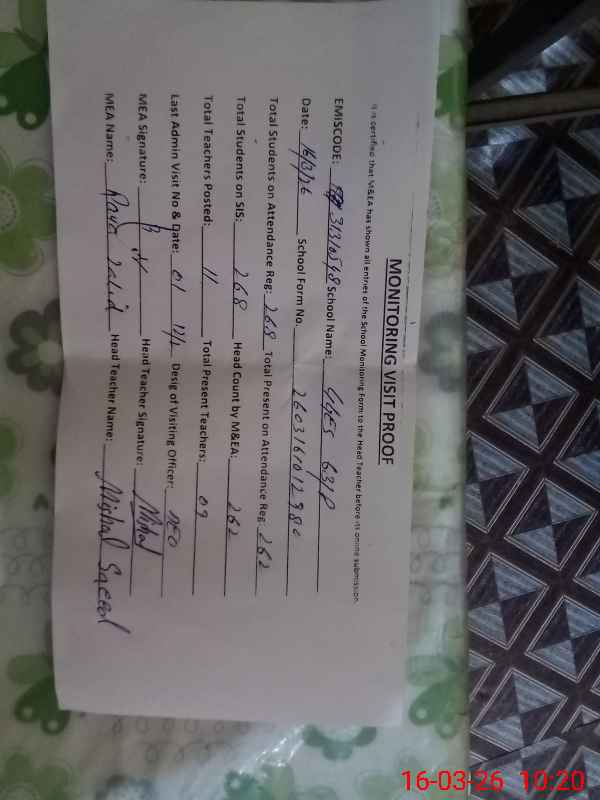 MONITORING VISIT PROOF
It is certified that M&EA has shown all entries of the School Monitoring Form to the Head Teacher before its online submission
EMISCODE: 31310548 School Name: GGES 63/P
Date: 16/3/26 School Form No. 2603161012980
Total Students on Attendance Reg: 268 Total Present on Attendance Reg: 262
Total Students on SIS: 268 Head Count by M&EA: 262
Total Teachers Posted: 11 Total Present Teachers: 09
Last Admin Visit No & Date: 01 Desig of Visiting Officer:
MEA Signature: Head Teacher Signature:
MEA Name: Head Teacher Name: Saeed
16-03-26 10:20